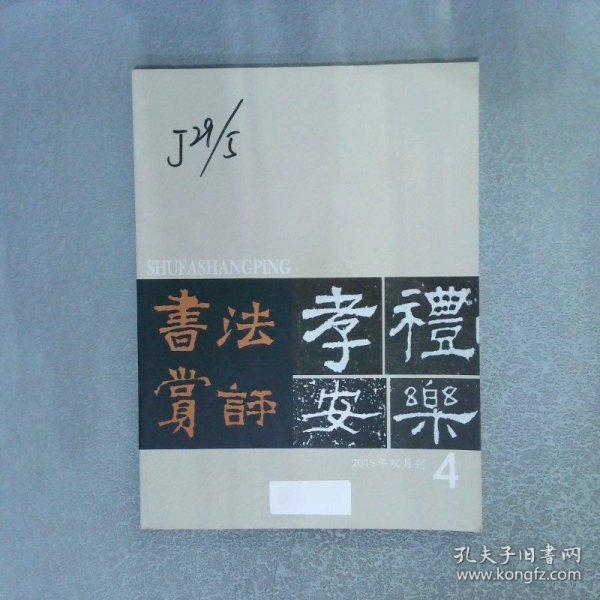 J29/5
SHUFASHANGPING
書法
賞評
孝禮
安樂
2015年双月刊 4
孔夫子旧書网
www.kongfz.com